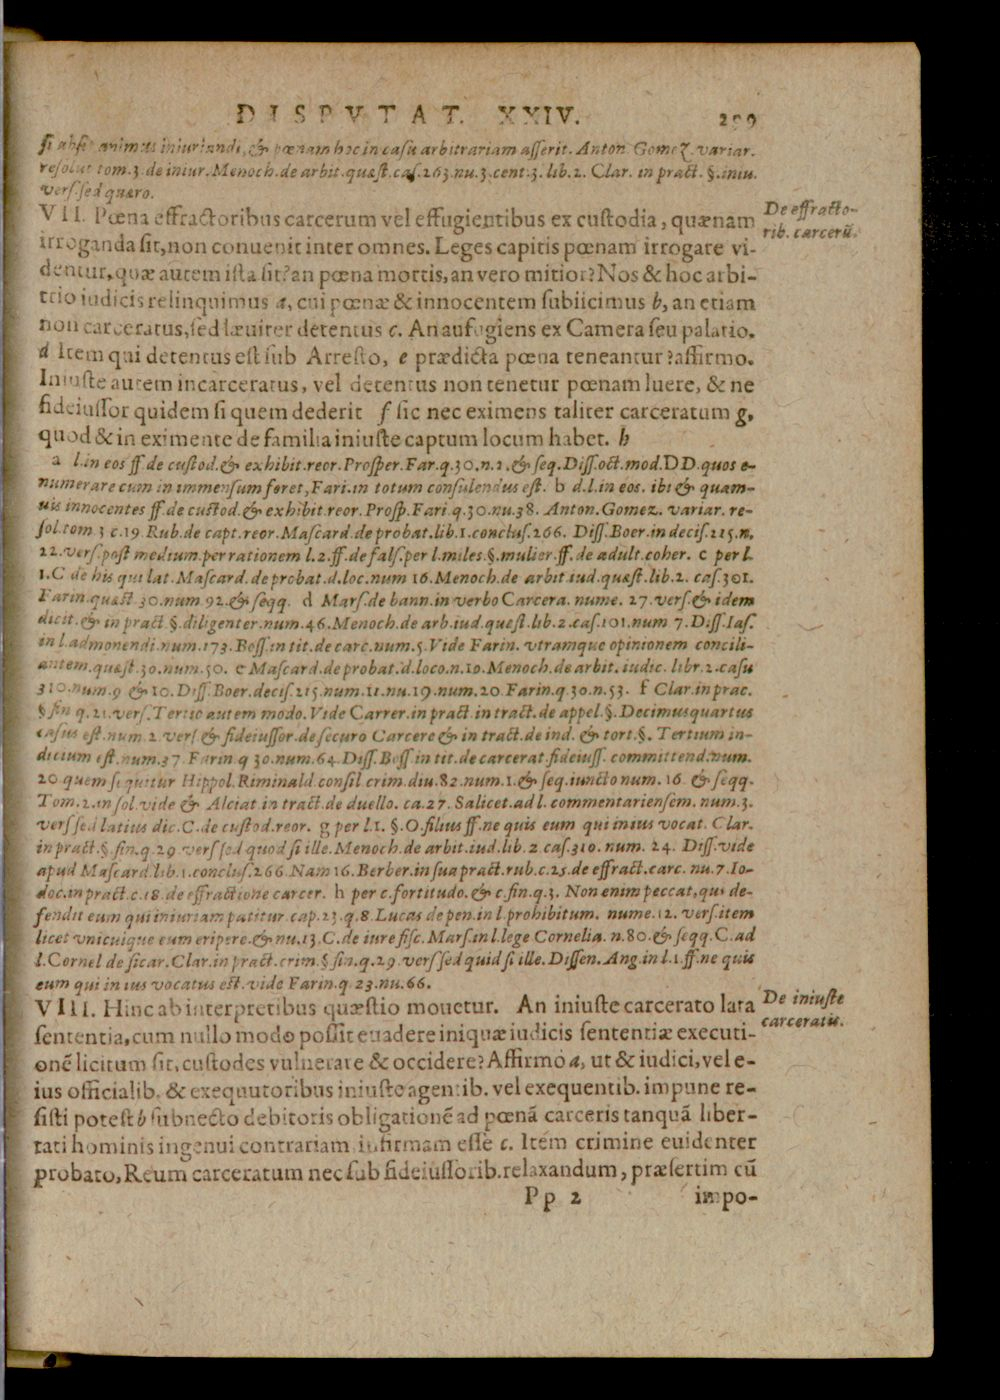 DISPVTAT. XXIV. 299
si absit animus iniuriandi, & pœnam hoc in casu arbitrariam asserit. Anton Gomez variar.
resolut tom.3.de iniur.Menoch.de arbit.quæst.cas.263.nu.3.cent.3.lib.2. Clar. in pract. §.iniu.
vers.sed quæro.
VII. Pœna effractoribus carcerum vel effugientibus ex custodia, quænam
De effracto-
rib. carcerũ.
irroganda sit, non conuenit inter omnes. Leges capitis pœnam irrogare vi-
dentur, quæ autem ista sit? an pœna mortis, an vero mitior? Nos & hoc arbi-
trio iudicis relinquimus a, cui pœnæ & innocentem subiicimus b, an etiam
non carceratus, sed læuiter detentus c. An aufugiens ex Camera seu palatio.
d Item qui detentus est sub Arresto, e prædicta pœna teneantur? affirmo.
Iniuste autem incarceratus, vel detentus non tenetur pœnam luere, & ne
fideiussor quidem si quem dederit f sic nec eximens taliter carceratum g,
quod & in eximente de familia iniuste captum locum habet. h
a l.in eos ff.de custod.& exhibit.reor.Prosper.Far.q.30.n.1.& seq.Diss.oct.mod.DD.quos e-
numerare cum in immensum foret, Fari.in totum consulendus est. b d.l.in eos. ibi & quam-
uis innocentes ff.de custod.& exhibit.reor.Prosp.Fari.q.30.nu.38. Anton.Gomez. variar. re-
sol.tom 3 c.19 Rub.de capt.reor.Mascard.de probat.lib.1.conclus.266. Diss.Boer.in decis.215.n.
22.vers.post medium.per rationem l.2.ff.de fals.per l.miles.§.mulier.ff.de adult.coher. c per l.
1.C de his qui lat.Mascard.de probat.d.loc.num 16.Menoch.de arbit.iud.quæst.lib.2. cas.301.
Farin.quæst 30.num 92.& seqq. d Mars.de bann.in verbo Carcera. nume. 27.vers.& idem
dicit.& in pract §.diligenter.num.46.Menoch.de arb.iud.quæst.lib.2.cas.101.num 7.Diss.Ias.
in l.admonendi.num.173.Boss.in tit.de carc.num.5.Vide Farin. vtramque opinionem concili-
antem.quæst.30.num.50. e Mascard.de probat.d.loco.n.10.Menoch.de arbit. iudic. libr.2.casu
310.num.9 & 10.Diss.Boer.decis.215.num.11.nu.19.num.20 Farin.q.30.n.53. f Clar.in prac.
§ fin q.21.vers.Tertio autem modo.Vide Carrer.in pract in tract.de appel.§.Decimusquartus
casus est.num 2 vers & fideiussor.de securo Carcere & in tract.de ind.& tort.§. Tertium in-
dicium est.num.37 Farin.q 30.num.64.Diss.Boss.in tit.de carcerat.fideiuss. committend.num.
20 quem sequitur Hippol.Riminald consil crim.diu.82.num.1.& seq.iuncto num. 16 & seqq.
Tom.2.in sol.vide & Alciat in tract.de duello. ca.27. Salicet.ad l. commentariensem. num.3.
vers sed latius dic.C.de custod.reor. g per l.1. §.O.filius ff.ne quis eum qui in ius vocat. Clar.
in pract.§ fin.q.29 vers sed quod si ille.Menoch.de arbit.iud.lib.2 cas.310. num. 24. Diss.vide
apud Mascard.lib.1.conclus.266 Nam 16.Berber.in sua pract.rub.c.25.de effract.carc. nu.7.Io-
doc.in pract.c.18.de effractione carcer. h per c.fortitudo.& c fin.q.3. Non enim peccat, qui de-
fendit eum qui iniuriam patitur.cap.23.q.8.Lucas de pen.in l prohibitum. nume.12. vers.item
licet vnicuique eum eripere.& nu.13.C.de iure fisc.Mars.in l.lege Cornelia. n.80.& seqq.C.ad
l.Cornel de sicar.Clar.in pract.crim.§ fin.q.29 vers sed quid si ille. Dissen. Ang.in l.1.ff.ne quis
eum qui in ius vocatus est.vide Farin.q 23.nu.66.
VIII. Hinc ab interpretibus quæstio mouetur. An iniuste carcerato lata
De iniuste
carceratis.
sententia, cum nullo modo possit euadere iniquæ iudicis sententiæ executi-
onẽ licitum sit, custodes vulnerare & occidere? Affirmo a, ut & iudici, vel e-
ius officialib. & exequutoribus iniuste agentib. vel exequentib. impune re-
sisti potest b subnecto debitoris obligationẽ ad pœnã carceris tanquã liber-
tati hominis ingenui contrariam infirmam esse c. Item crimine euidenter
probato, Reum carceratum nec sub fideiussorib. relaxandum, præsertim cũ
Pp 2 impo-